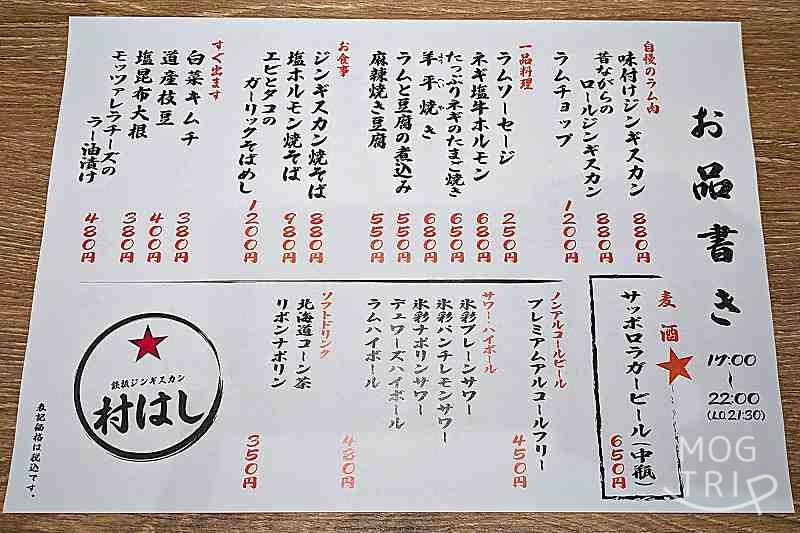 お品書き
17:00
~
22:00
(L.O.21:30)
自慢のラム肉
味付けジンギスカン
880円
昔ながらの
ロールジンギスカン
880円
ラムチョップ
1200円
一品料理
ラムソーセージ
250円
ネギ塩牛ホルモン
680円
たっぷりネギのたまご焼き
650円
羊平焼き
680円
ラムと豆腐の煮込み
550円
麻辣焼き豆腐
550円
お食事
ジンギスカン焼そば
880円
塩ホルモン焼そば
980円
エビとタコの
ガーリックそばめし
1200円
すぐ出ます
白菜キムチ
380円
道産枝豆
400円
塩昆布大根
380円
モッツァレラチーズの
ラー油漬け
480円
麦酒
サッポロラガービール(中瓶)
650円
ノンアルコールビール
プレミアムアルコールフリー
450円
サワー・ハイボール
氷彩プレーンサワー
氷彩パンチレモンサワー
氷彩ナポリンサワー
デュワーズハイボール
ラムハイボール
480円
ソフトドリンク
北海道コーン茶
リボンナポリン
350円
鉄板ジンギスカン
村はし
表記価格は税込です。
MOG
TRIP